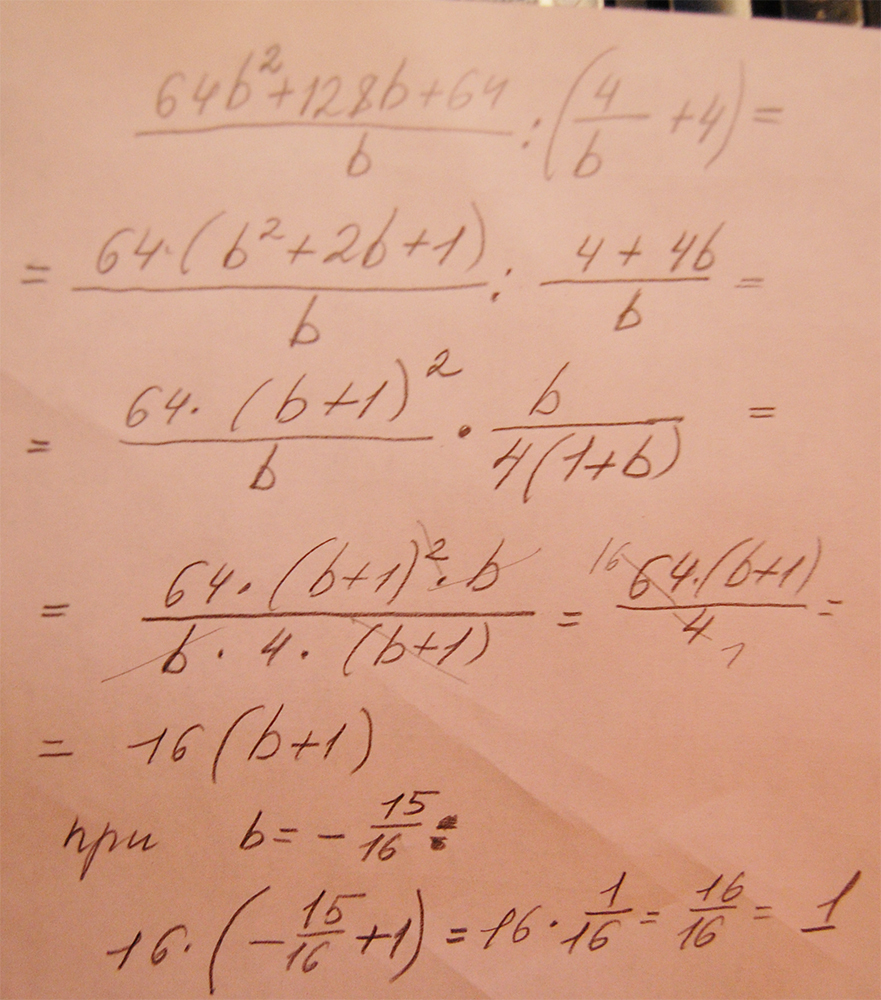 (64b²+128b+64)/b : (4/b + 4) =
= 64·(b²+2b+1)/b : (4+4b)/b =
= 64·(b+1)²/b · b/4(1+b) =
= 64·(b+1)²·b/b·4·(b+1) = 16 64·(b+1)/4 1 =
= 16(b+1)
при b = - 15/16 :
16·(-15/16+1) = 16·1/16 = 16/16 = 1